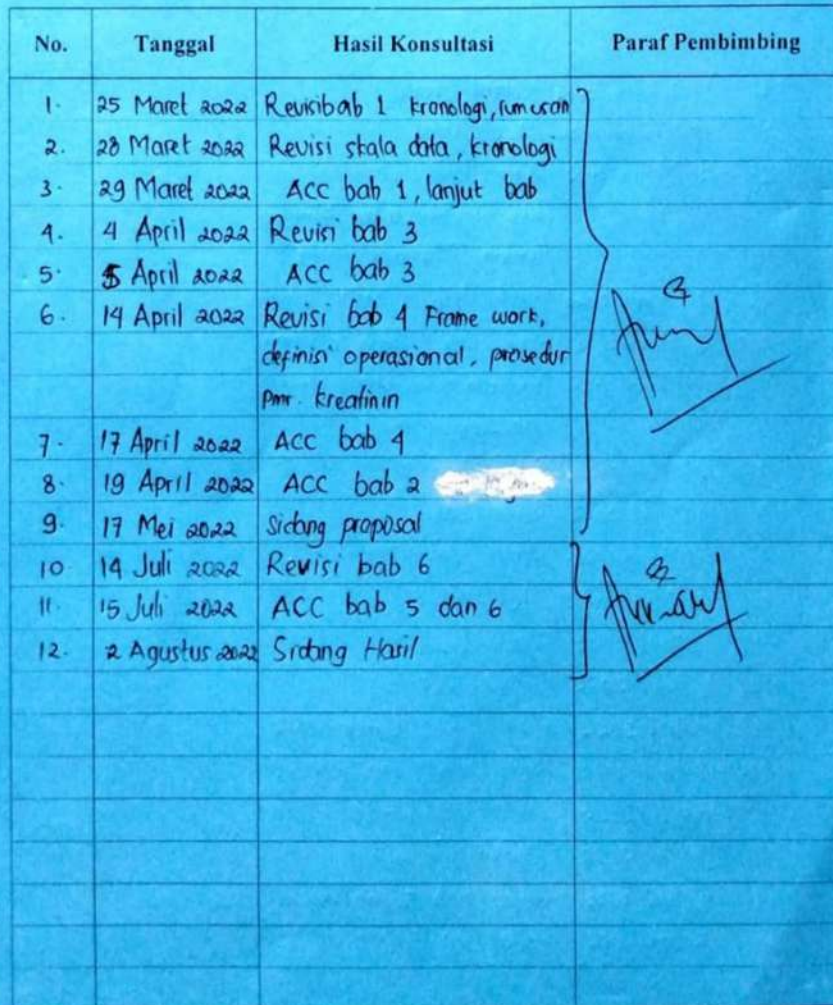 No. Tanggal Hasil Konsultasi Paraf Pembimbing
1. 25 Maret 2022 Revisi bab 1 kronologi, rumusan
2. 28 Maret 2022 Revisi skala data, kronologi
3. 29 Maret 2022 ACC bab 1, lanjut bab
4. 4 April 2022 Revisi bab 3
5. 5 April 2022 ACC bab 3
6. 14 April 2022 Revisi bab 4 Frame work,
definisi operasional, prosedur
pmr. kreatinin
7. 17 April 2022 ACC bab 4
8. 19 April 2022 ACC bab 2
9. 17 Mei 2022 Sidang proposal
10. 14 Juli 2022 Revisi bab 6
11. 15 Juli 2022 ACC bab 5 dan 6
12. 2 Agustus 2022 Sidang Hasil